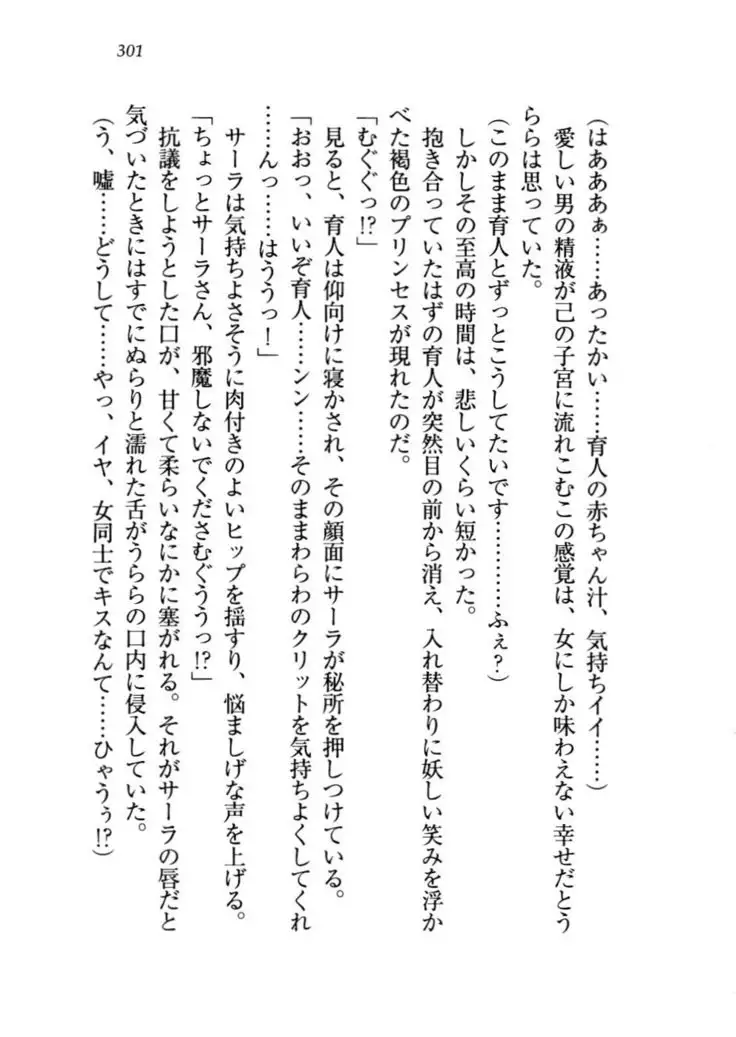 301
（はあああぁ……あったかい……育人の赤ちゃん汁、気持ちイイ……）
愛しい男の精液が己の子宮に流れこむこの感覚は、女にしか味わえない幸せだとう
ららは思っていた。
（このまま育人とずっとこうしてたいです…………ふぇ？）
しかしその至高の時間は、悲しいくらい短かった。
抱き合っていたはずの育人が突然目の前から消え、入れ替わりに妖しい笑みを浮か
べた褐色のプリンセスが現れたのだ。
「むぐぐっ!?」
見ると、育人は仰向けに寝かされ、その顔面にサーラが秘所を押しつけている。
「おおっ、いいぞ育人……ンン……そのままわらわのクリットを気持ちよくしてくれ
……んっ……はううっ！」
サーラは気持ちよさそうに肉付きのよいヒップを揺すり、悩ましげな声を上げる。
「ちょっとサーラさん、邪魔しないでくださむぐううっ!?」
抗議をしようとした口が、甘くて柔らいなにかに塞がれる。それがサーラの唇だと
気づいたときにはすでにぬらりと濡れた舌がうららの口内に侵入していた。
（う、嘘……どうして……やっ、イヤ、女同士でキスなんて……ひゃうぅ!?）